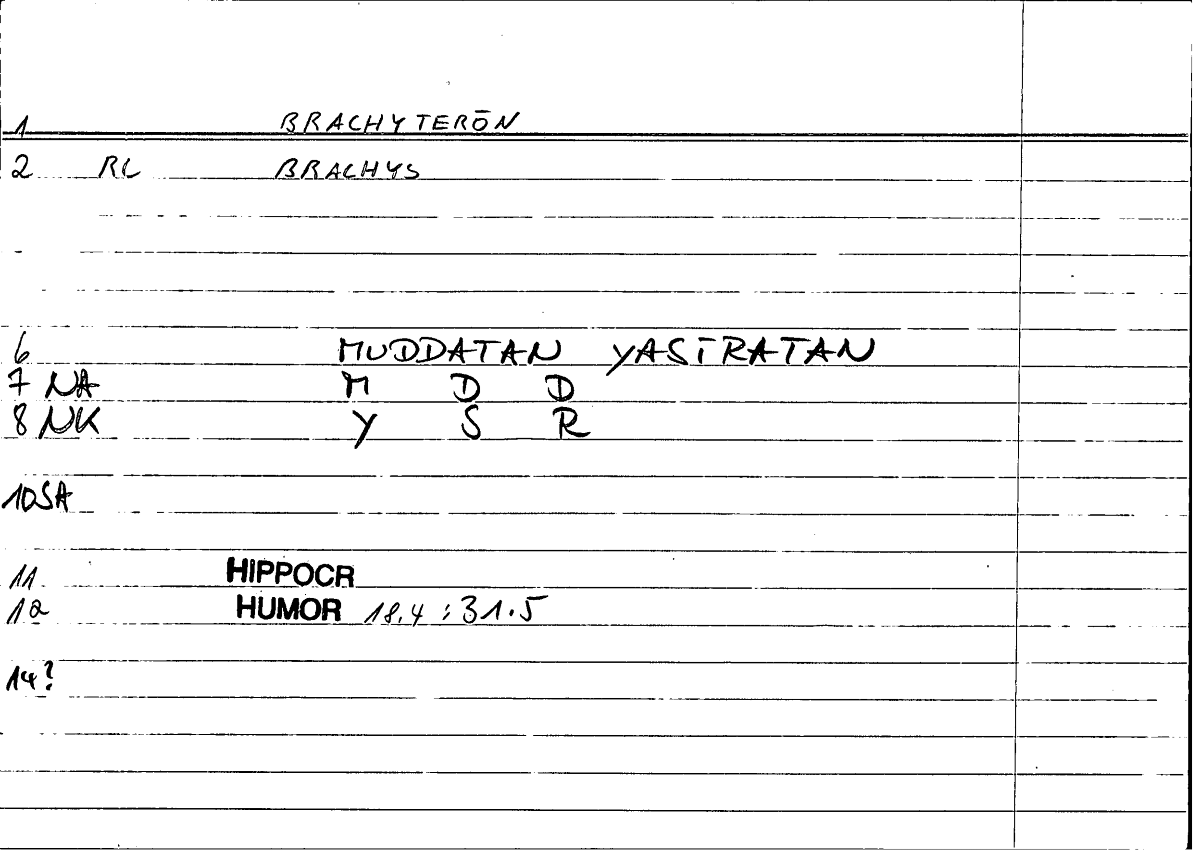 1 BRACHYTERŌN
2 RL BRACHYS
6 MUDDATAN YASĪRATAN
7 NA M D D
8 NK Y S R
10 SA
11 HIPPOCR
12 HUMOR 18.4 : 31.5
14?